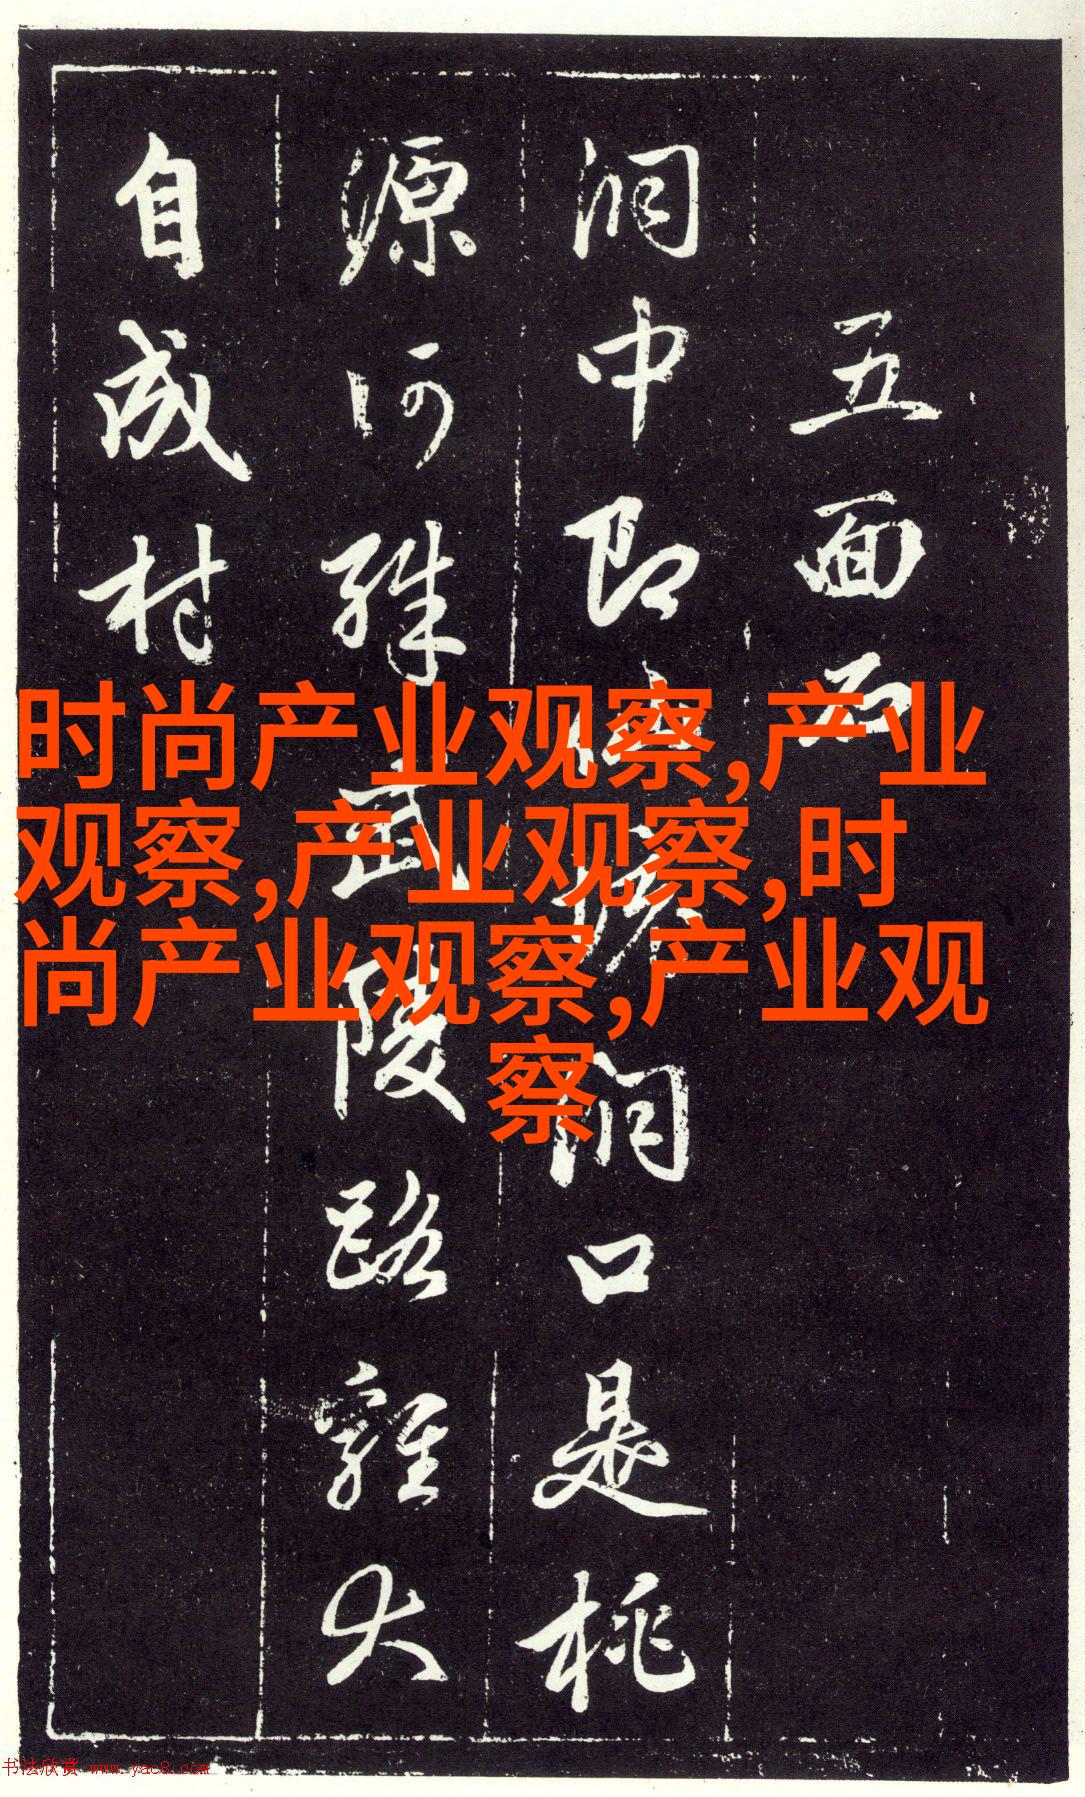 五面
洞中即仙境洞口是桃
源何殊武陵路雞犬
自成村
时尚产业观察,产业
观察,产业观察,时
尚产业观察,产业观
察
书法欣赏 www.yac8.com